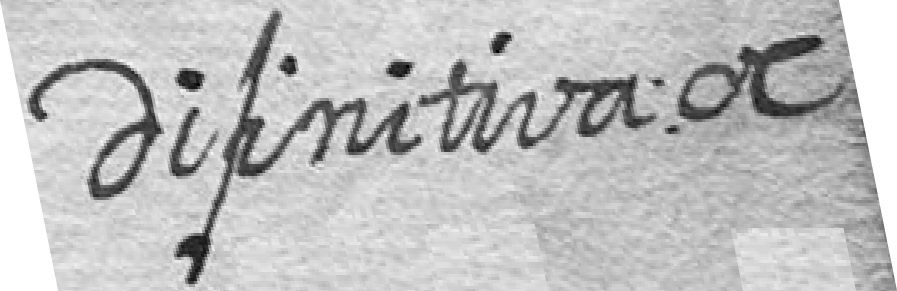 difinitiva: &